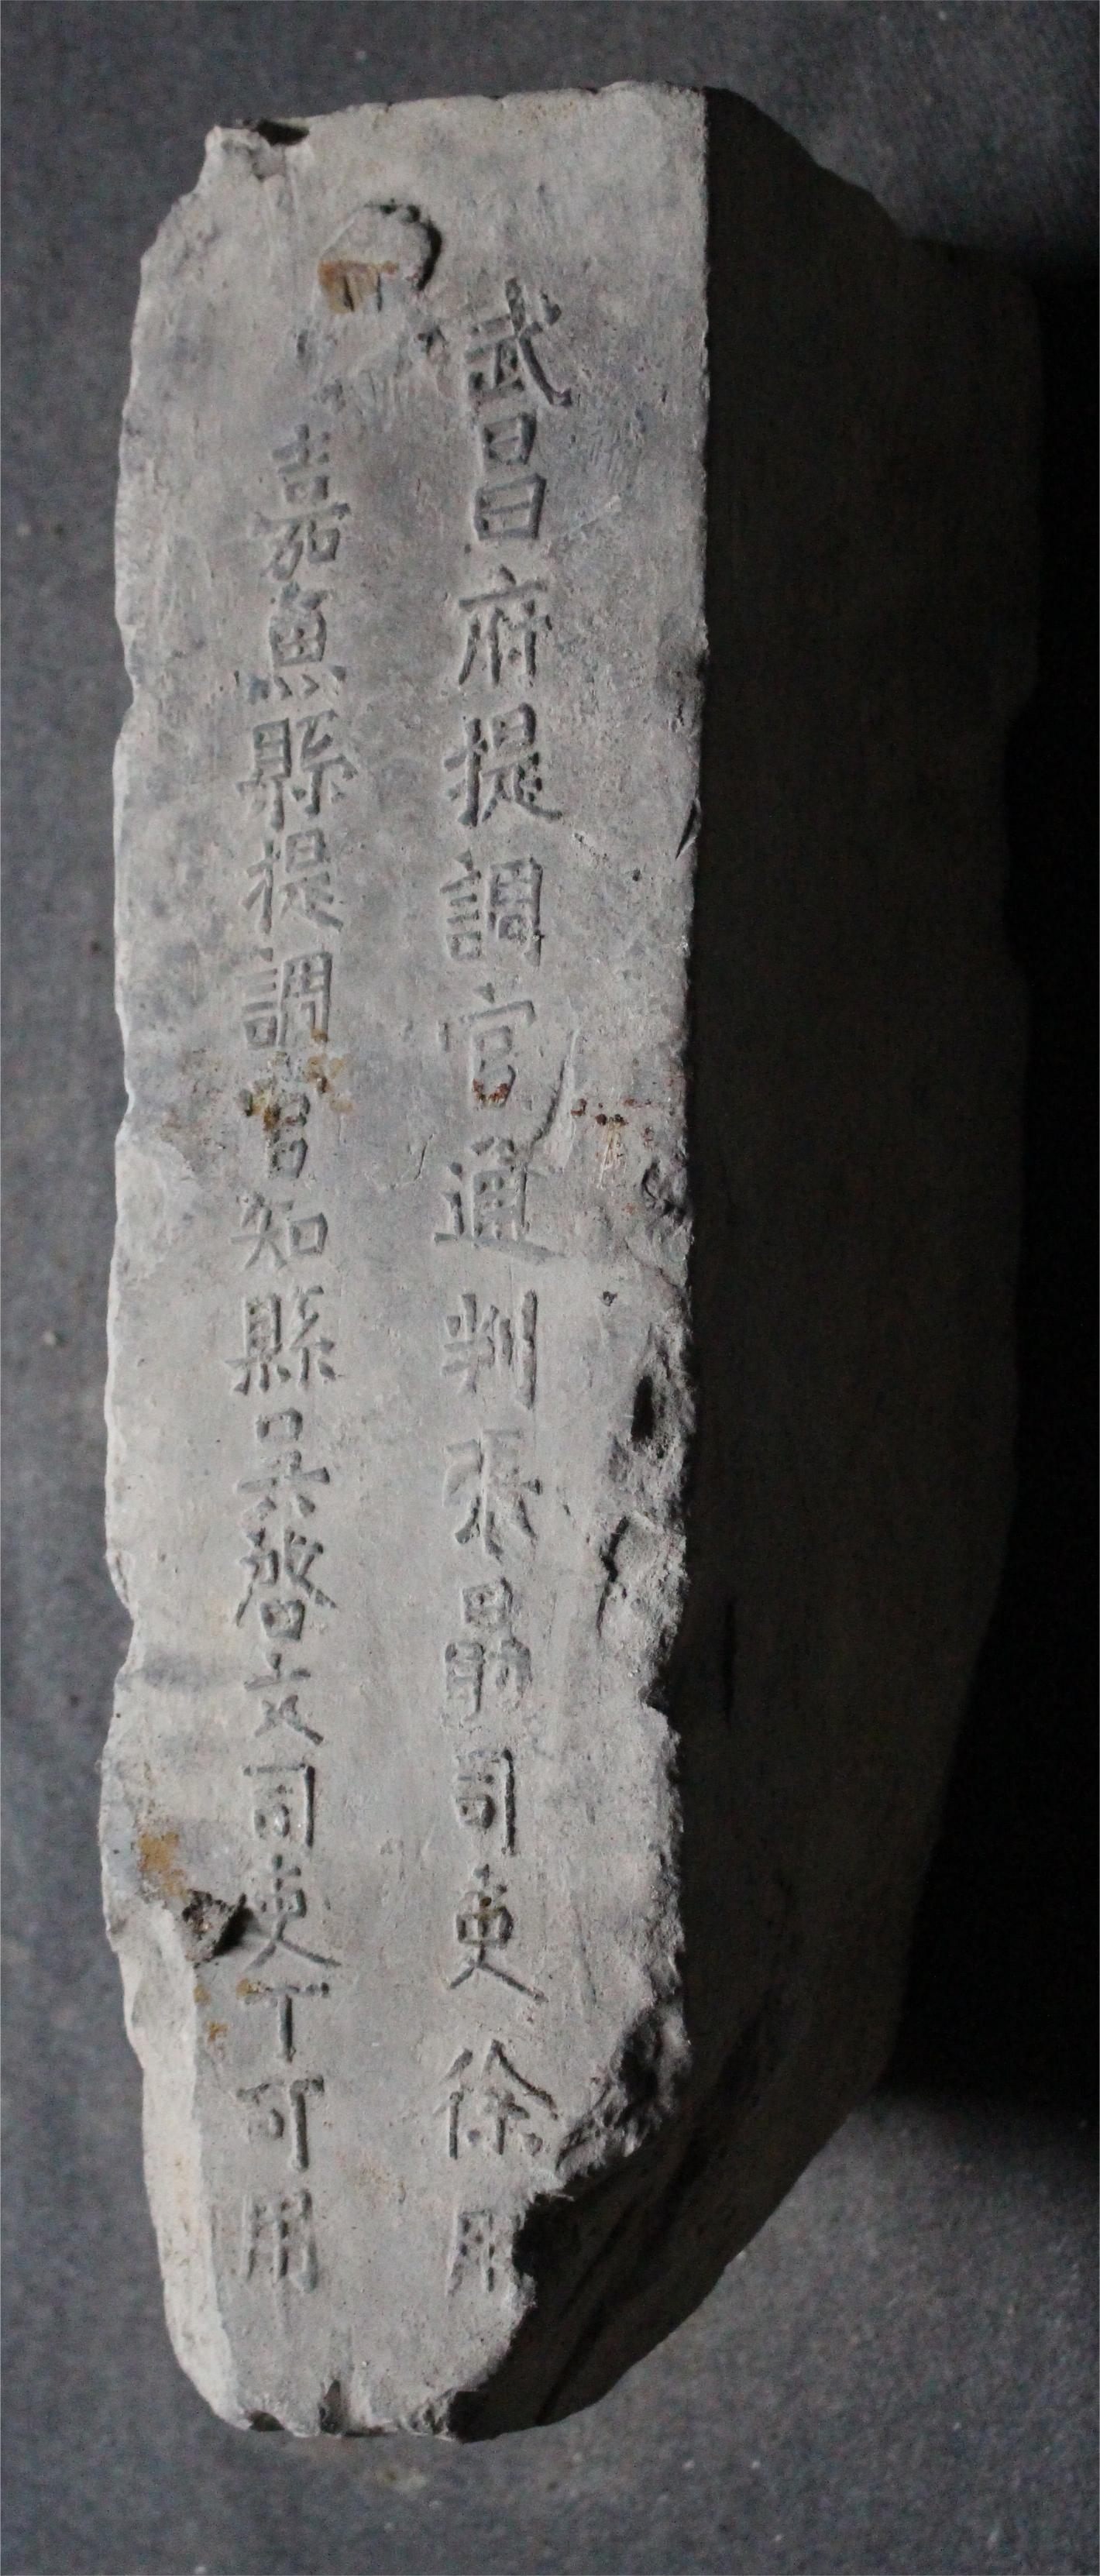 武昌府提調官通判張勗司吏徐
嘉魚縣提調官知縣吳啓文司吏丁可用